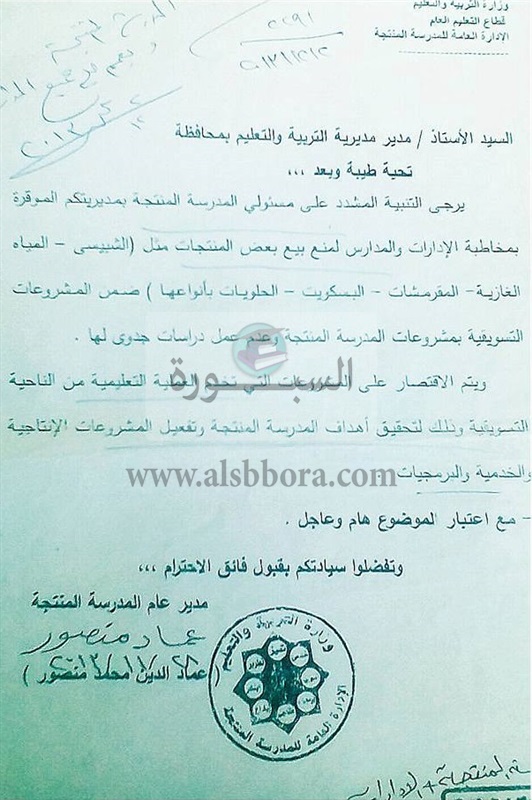 وزارة التربية والتعليم
قطاع التعليم العام
الإدارة العامة للمدرسة المنتجة
٢٢٩١
السيد الأستاذ / مدير مديرية التربية والتعليم بمحافظة
تحية طيبة وبعد ،،،
يرجى التنبية المشدد على مسئولي المدرسة المنتجة بمديريتكم الموقرة
بمخاطبة الإدارات والمدارس لمنع بيع بعض المنتجات مثل (الشيبسى – المياه
الغازية- المقرمشات – البسكويت – الحلويات بأنواعها ) ضمن المشروعات
التسويقية بمشروعات المدرسة المنتجة وعدم عمل دراسات جدوى لها .
السبورة
ويتم الاقتصار على المشروعات التي تخدم العملية التعليمية من الناحية
التسويقية وذلك لتحقيق أهداف المدرسة المنتجة وتفعيل المشروعات الإنتاجية
www.alsbbora.com
والخدمية والبرمجيات
- مع اعتبار الموضوع هام وعاجل .
وتفضلوا سيادتكم بقبول فائق الاحترام ،،،
مدير عام المدرسة المنتجة
عماد منصور
عماد الدين محمد منصور )
وزارة التربية والتعليم
الإدارة العامة للمدرسة المنتجة